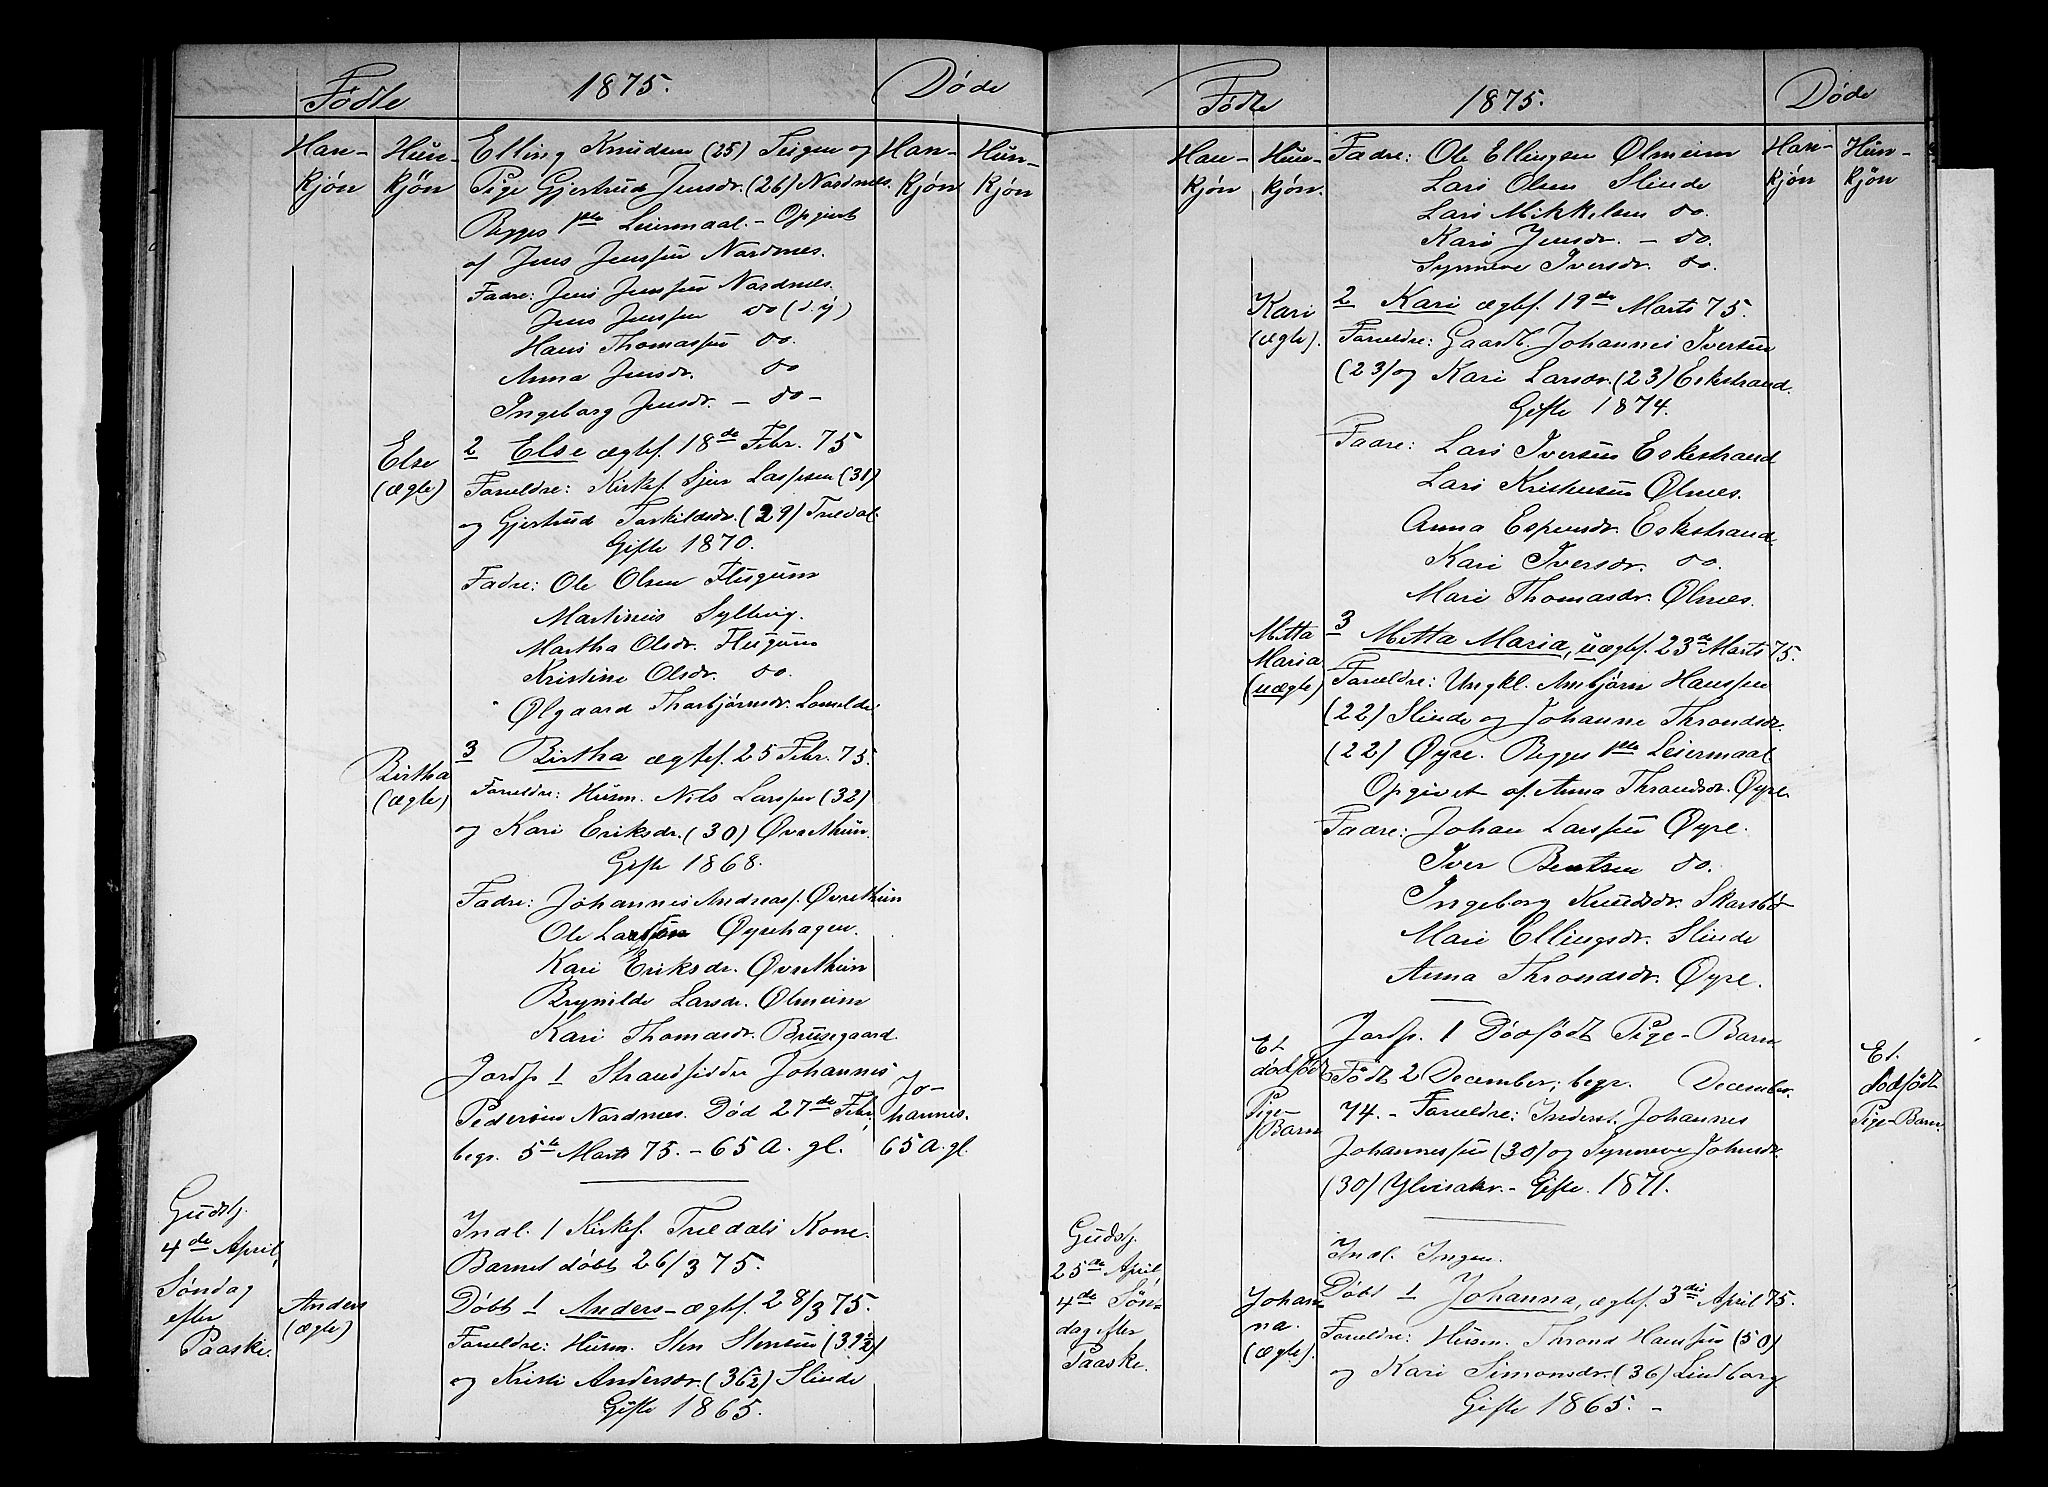 Fødte
1875.
Døde
Han-
kjön
Hün-
kjön
Elling Knudsen (25) Teigen og
Pige Gjertrud Jensdr. (26) Nordnes.
Begges 1ste Leiermaal. - Opgivet
af Jens Jenssen Nordnes.
Fadre: Jens Jenssen Nordnes.
Jens Jenssen do (d. y)
Hans Thomassen do.
Anna Jensdr. do
Ingeborg Jensdr. - do -
Han-
kjön
Hün-
kjön
Else
(ægte)
2 Else ægtef. 18de Febr. 75
Forældre: Kirkes. Sjur Lassesen (31)
og Gjertrud Torkildsdr. (29) Trædal.
Gifte 1870.
Fadre: Ole Olsen Flugum
Martinus Sylteig.
Martha Olsdr. Flugum
Kristine Olsdr. do.
Ølgaard Thorbjørnsdr. Lomelde.
Birtha
(ægte)
3 Birtha ægtef. 25 Febr. 75.
Forældre: Husm. Nils Larssen (32)
og Kari Eriksdr. (30) Øvrethun.
Gifte 1868.
Fadre: Johannes Andreass. Øvrethun
Ole Larssen Øyrehagen.
Kari Eriksdr. Øvrethun
Brynilde Larsdr. Ølmeim
Kari Thomasdr. Brusegaard.
Jordf. 1 Strandsidder Johannes
Pedersen Nordnes. Død 27de Febr.,
begr. 5te Marts 75. - 65 A. gl.
Jo-
hannes.
65 A. gl.
Gudstj.
4de April,
Søndag
efter
Paaske.
Indl. 1 Kirkes. Trædals Kone.
Barnet døbt 26/3 75.
Anders
(ægte)
Døbt 1 Anders - ægtef. 28/3 75.
Forældre: Husm. Sten Stensen (39½)
og Kristi Andersdr. (36½) Slinde
Gifte 1865.
Fødte
1875.
Døde
Han-
kjön
Hün-
kjön.
Fadre: Ole Ellingsen Ølmeim
Lars Olsen Slinde
Lars Mikkelsen do.
Kari Jensdr. - do.
Synneve Iversdr. do.
Han-
kjön
Hün-
kjön
Kari
(ægte).
2 Kari ægtef. 19de Marts 75.
Forældre: Gaardb. Johannes Iversen
(23) og Kari Larsdr. (23) Eskestrand.
Gifte 1874.
Fadre: Lars Iversen Eskestrand
Lars Kristensen Ølnes.
Anna Espensdr. Eskestrand.
Kari Iversdr. do.
Mari Thomasdr. Ølnes.
Mitta
Maria
(uægte)
3 Mitta Maria, uægtef. 23de Marts 75.
Forældre: Ungkl. Anbjørn Hanssen
(22) Slinde og Johanne Throndsdr.
(22) Øyre. Begges 1ste Leiermaal
Opgivet af Anna Throndsdr. Øyre.
Fadre: Johan Larssen Øyre.
Iver Bentsen do.
Ingeborg Knudsdr. Skarsbø
Mari Ellingsdr. Slinde
Anna Throndsdr. Øyre.
Et
dødfødt
Pige-
Barn
Jordf. 1 Dødfödt Pige-Barn
Födt 2 December; begr. December
74. - Forældre: Inderst. Johannes
Johannessen (30) og Synneve Johnsdr.
(30) Ylvisaker. - Gifte. 1871.
Et.
dødfödt
Pige-Barn.
Gudstj.
25de April,
4de Søn-
dag efter
Paaske.
Indl. Ingen.
Johan-
na.
(ægte).
Døbt 1 Johanna, ægtef. 3die April 75.
Forældre: Husm. Thrond Hanssen (50)
og Kari Simonsdr. (36) Lindborg
Gifte 1865. -